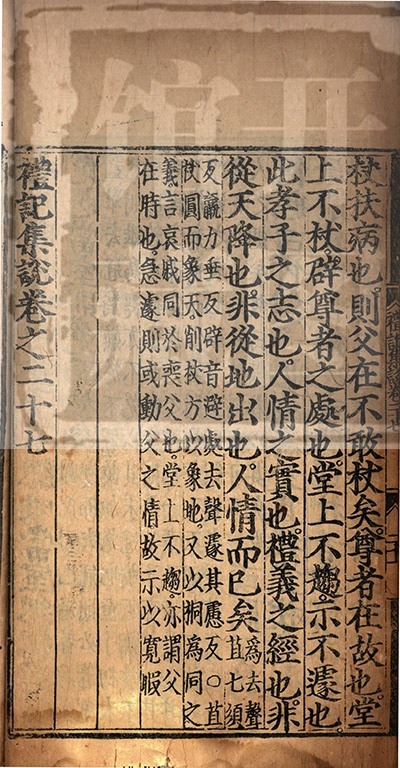 杖扶病也。則父在不敢杖矣。尊者在故也。堂
上不杖。辟尊者之處也。堂上不趨。示不遽也。
此孝子之志也。人情之實也。禮義之經也。非
從天降也。非從地出也。人情而已矣 爲去聲
苴七須
反羸力垂反辟音避處去聲遽其慮反○苴
杖圓而象天削杖方以象地。又以桐爲同之
義言哀戚同於喪父也。堂上不趨。亦謂父
在時也。急遽則或動父之情故示以寬暇
禮記集說卷之二十七